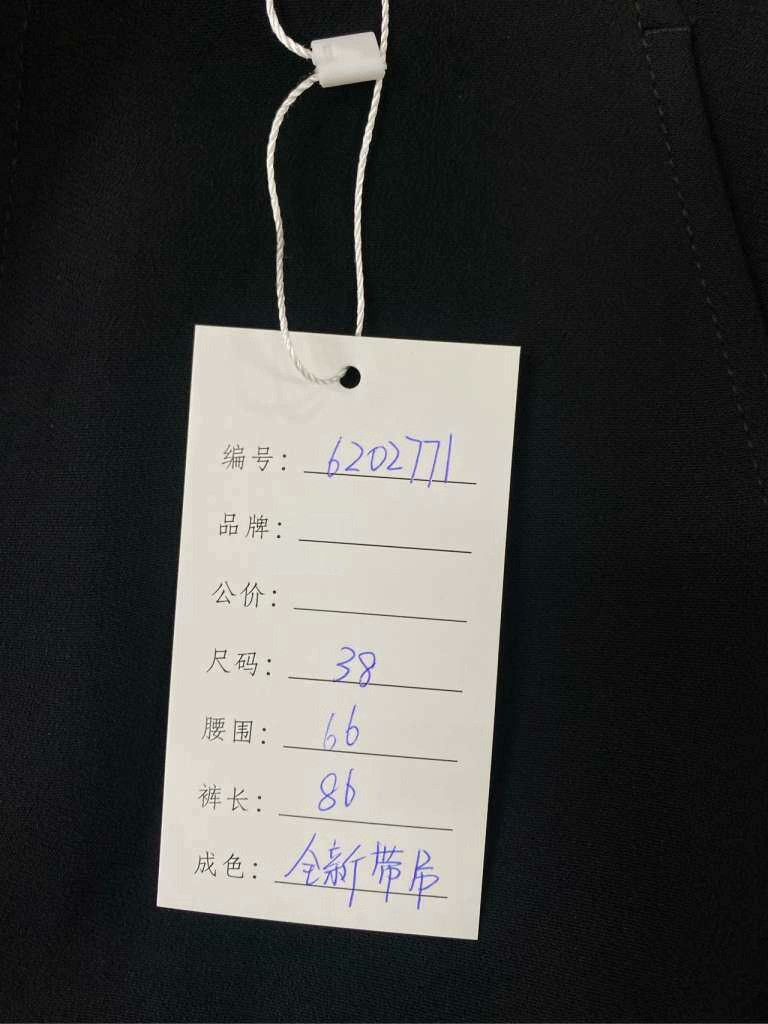 编号：6202771
品牌：
公价：
尺码：38
腰围：66
裤长：86
成色：全新带吊